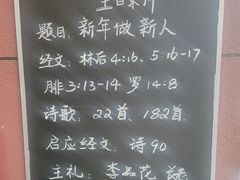 主日聚会
题目: 新年做新人
经文: 林后4:16. 5:16-17
腓3:13-14 罗14:8
诗歌: 22首、182首.
启应经文. 诗90
主礼: 李品花